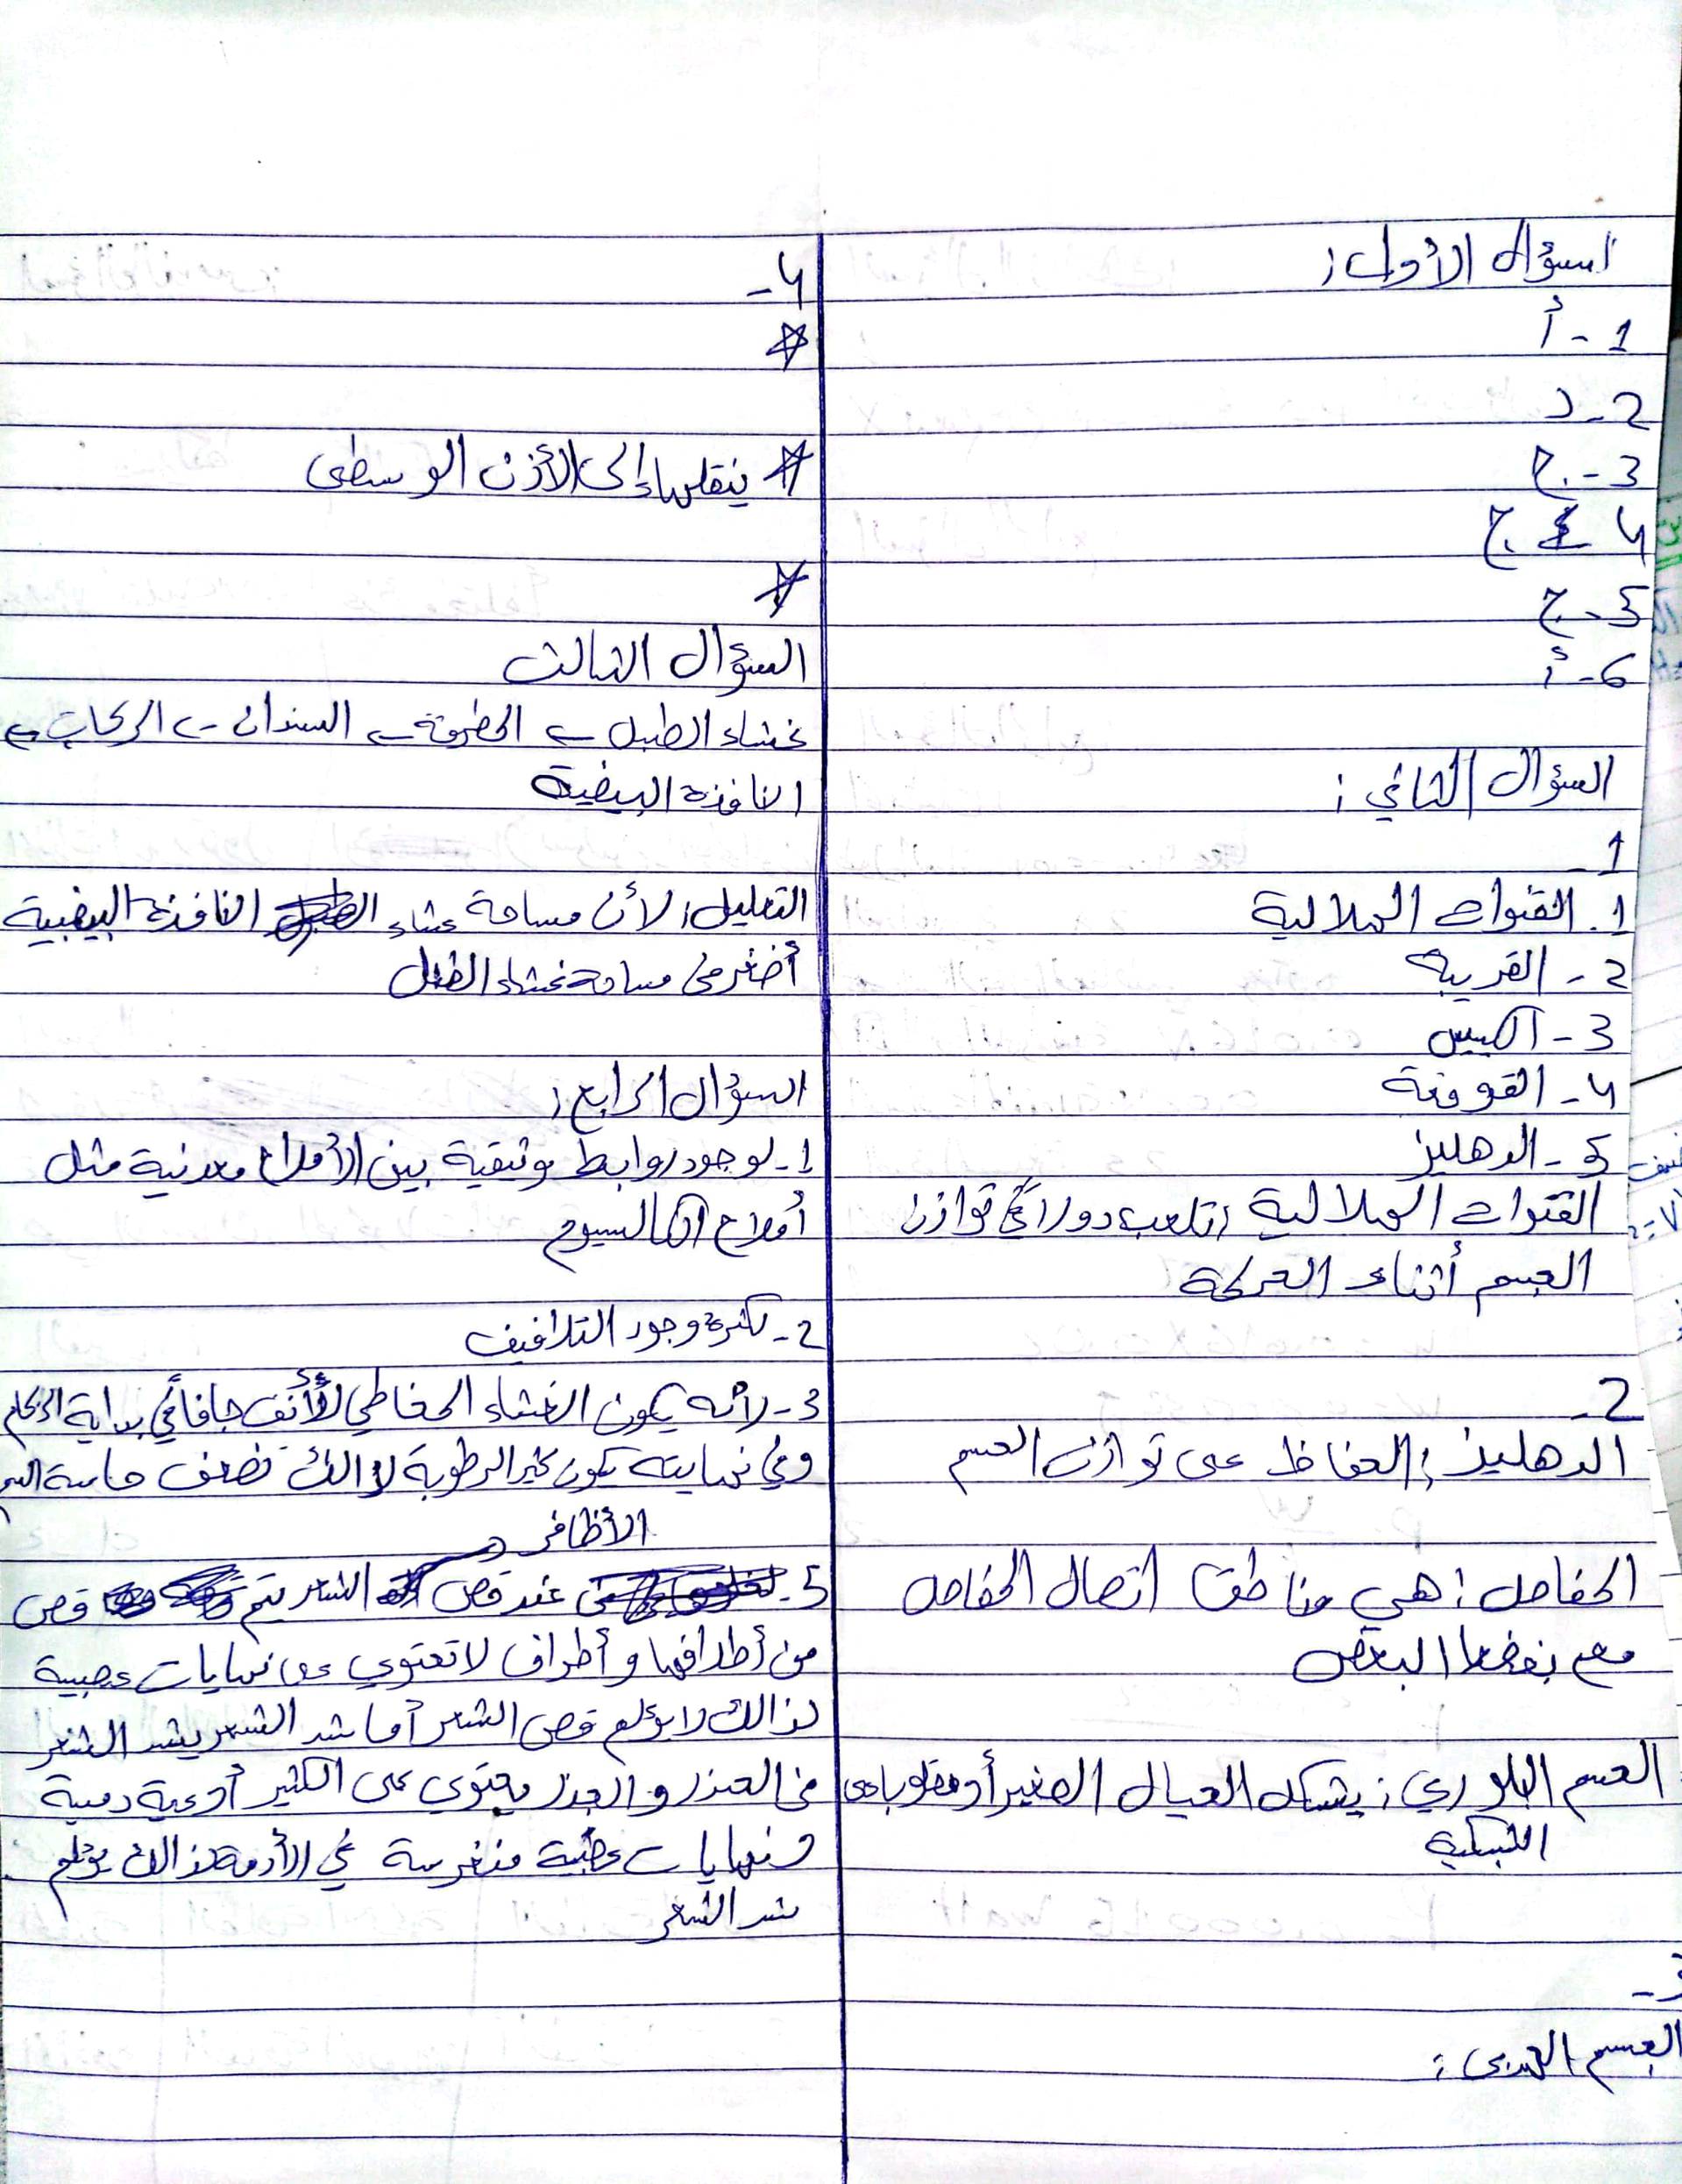 السؤال الأول :
1 - أ
2 - د
3 - ج
4 - ج
5 - ج
6 - أ
السؤال الثاني :
1 -
1. القنوات الهلالية
2 - القريبة
3 - الكييس
4 - القوقعة
5 - الدهليز
القنوات الهلالية : تلعب دوراً في توازن
الجسم أثناء الحركة
2 -
الدهليز : الحفاظ على توازن الجسم
المفاصل : هي مناطق اتصال المفاصل
مع بعضها البعض
الجسم البلوري : يشكل الخيال الصغير أو مقلوبا على
الشبكية
3 -
الجسم الهدبي :
4 -
ينقلها إلى الأذن الوسطى
السؤال الثالث
غشاء الطبل ← المطرقة ← السندان ← الركاب ←
النافذة البيضية
التعليل : لأن مساحة غشاء النافذة البيضية
أصغر من مساحة غشاء الطبل
السؤال الرابع :
1 - لوجود روابط وثيقية بين الأملاح معدنية مثل
أملاح الكالسيوم
2 - لكثرة وجود التلافيف
3 - لأنه يكون الغشاء المخاطي للأنف جافا في بداية الزكام
وفي نهايته يكون كثير الرطوبة لذالك تضعف حاسة الشم
الأظافر
5 - عند قص الشعر يتم قص
من أطرافها وأطراف لا تحتوي على نهايات عصبية
لذالك لا يؤلم قص الشعر أما شد الشعر يشد الشعر
من الجذر والجذر يحتوي على الكثير أوعية دموية
ونهايات عصبية منغرسة في الأدمة لذالك يؤلم
شد الشعر